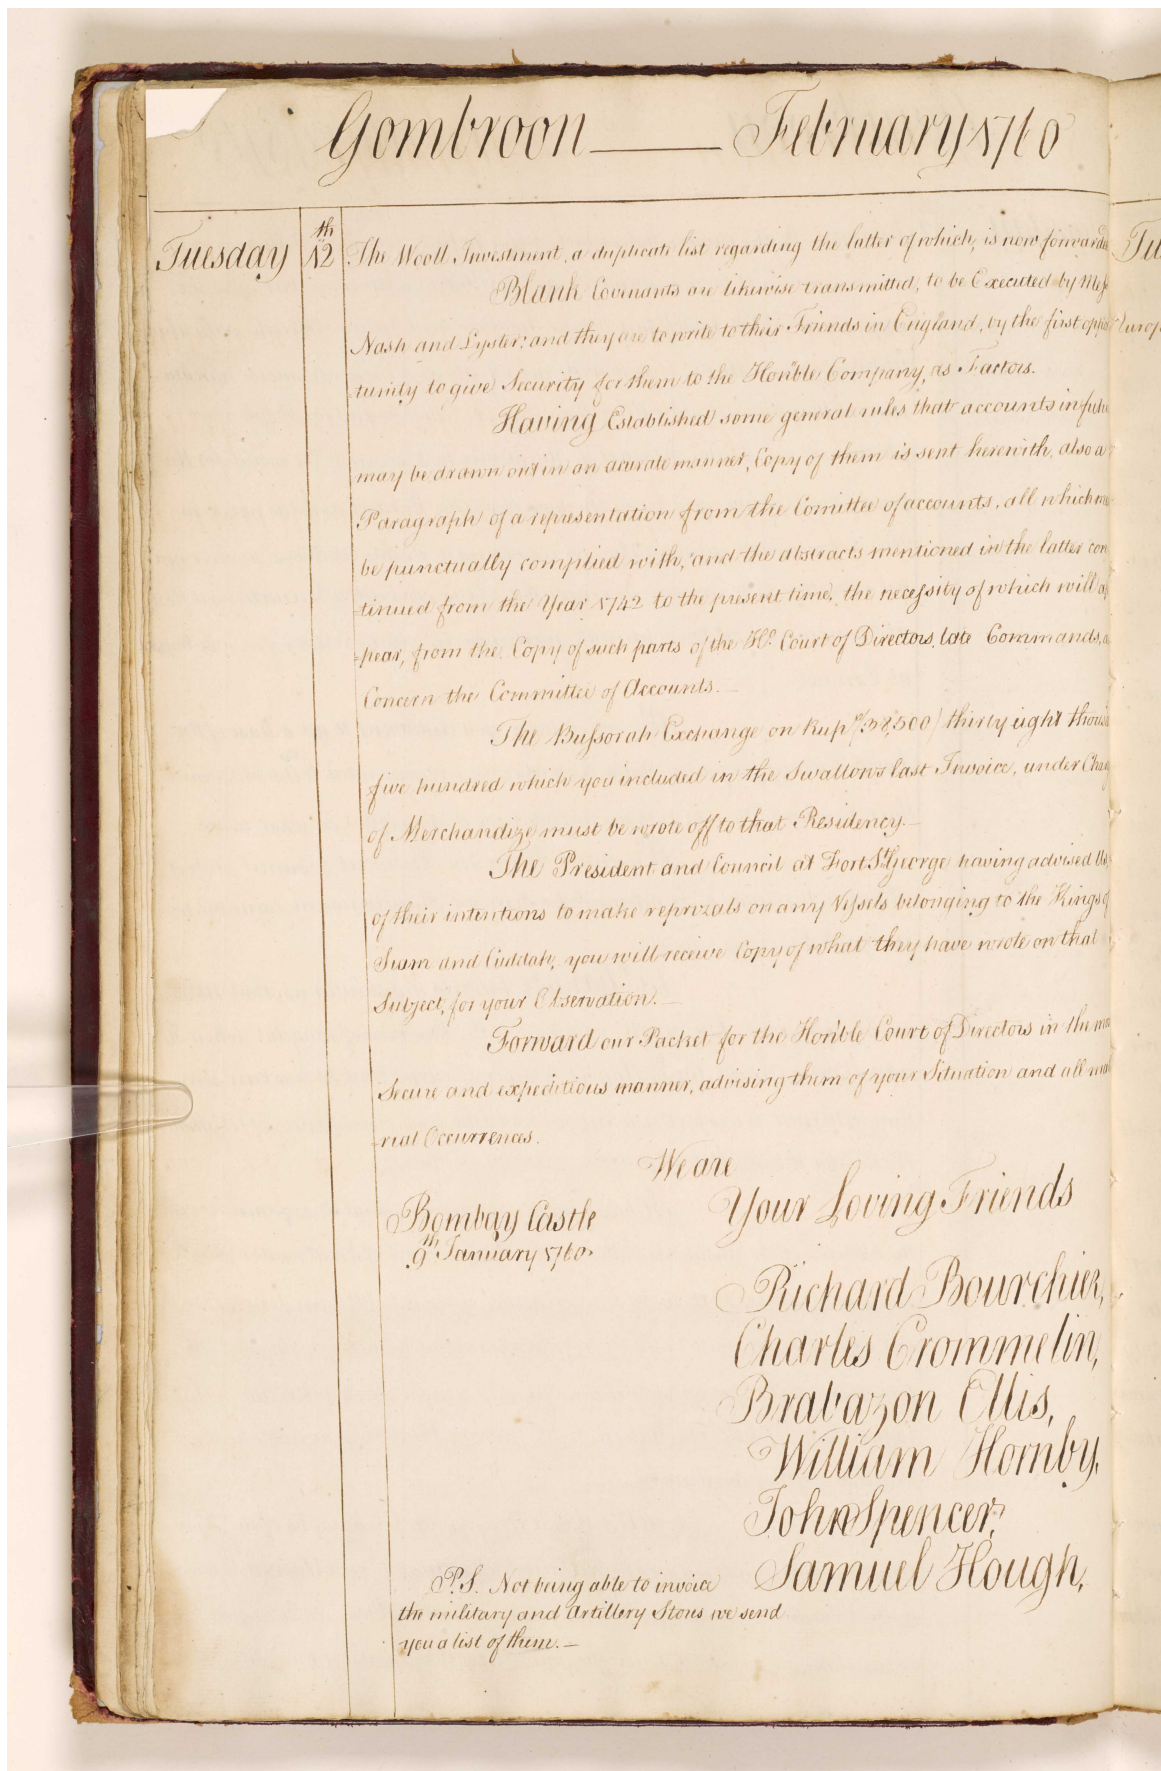 Gombroon — February 1760
Tuesday 12th The Wooll Investment, a duplicate list regarding the latter of which, is now forwarded
Blank Covenants are likewise transmitted, to be Executed by Mess
Nash and Lyster; and they are to write to their Friends in England, by the first oppor
tunity to give Security for them to the Honble Company, as Factors.
Having Established some general rules that accounts in future
may be drawn out in an acurate manner, Copy of them is sent herewith, also a
Paragraph of a representation from the Comittee of accounts, all which
be punctually complied with, and the abstracts mentioned in the latter con
tinued from the Year 1742 to the present time, the necessity of which will ap
=pear, from the Copy of such parts of the Ho. Court of Directors, late Commands, as
Concern the Committee of Accounts.—
The Bussorah Exchange on Rups (38,500) thirty eight thousand
five hundred which you included in the Swallows last Invoice, under Charges
of Merchandize must be wrote off to that Residency.—
The President and Council at Fort St. George having advised Us,
of their intentions to make reprizals on any Vessels belonging to the Kings of
Siam and Cuddah, you will receive Copy of what they have wrote on that
Subject, for your Observation.—
Forward our Packet for the Honble Court of Directors in the most
Secure and expeditious manner, advising them of your Situation and all mate
-rial Occurrences.
We are
Your Loving Friends
Bombay Castle
9th January 1760.
Richard Bourchier,
Charles Crommelin,
Brabazon Ellis,
William Hornby,
John Spencer,
Samuel Hough,
P.S. Not being able to invoice
the military and Artillery Stores we send
you a list of them.—